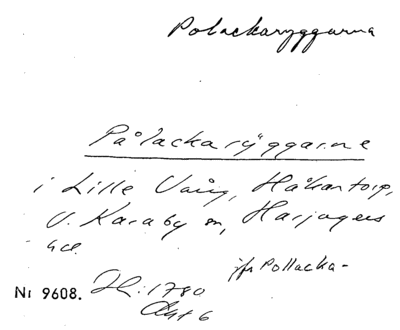 Polackaryggarna
Pålackarÿggarne
i Lille Vång, Håkantorp,
V. Karaby sn, Harjagers
hd.
jfr Pollacka-
Nr 9608. LK: 1780
Akt 6